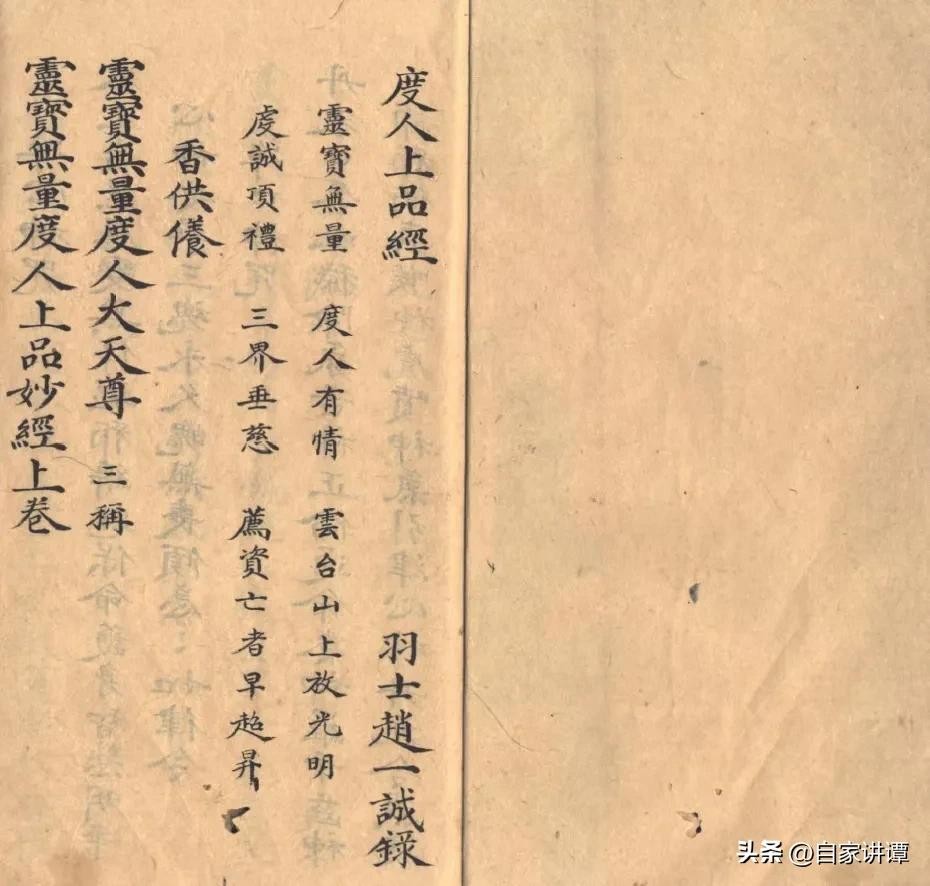 度人上品經 羽士趙一誠錄
靈寶無量 度人有情 雲台山上放光明
虔誠項禮 三界垂慈 薦資亡者早超昇
香供儀
靈寶無量度人大天尊 三稱
靈寶無量度人上品妙經上卷
头条 @自家讲谭